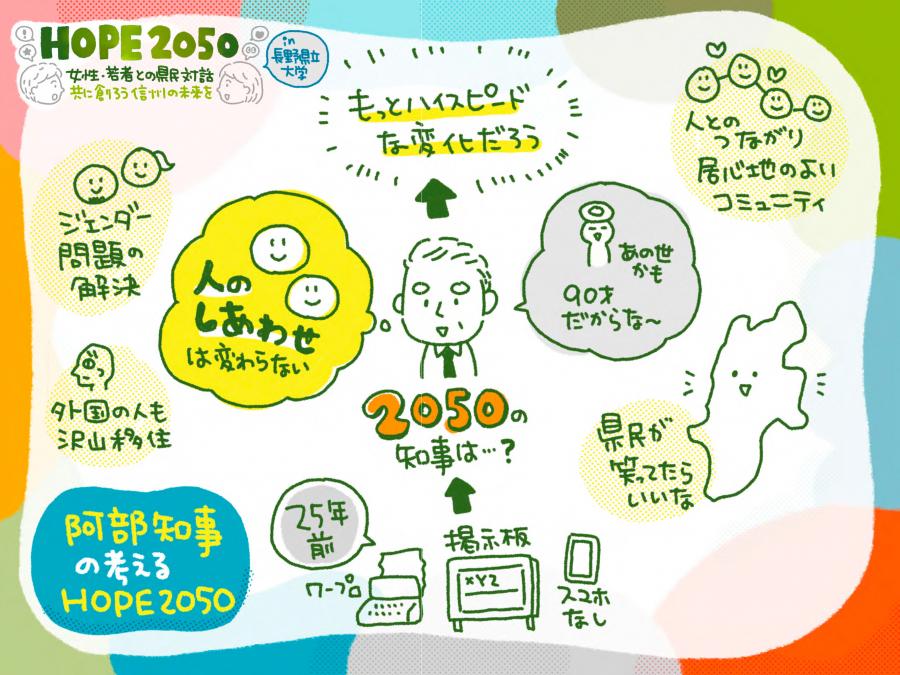 HOPE 2050
女性・若者との県民対話
共に創ろう信州の未来を
in
長野県立
大学
もっとハイスピード
な変化だろう
人との
つながり
居心地のよい
コミュニティ
ジェンダー
問題の
解決
人の
しあわせ
は変わらない
あの世
かも
90才
だからな〜
外国の人も
沢山移住
2050の
知事は…?
県民が
笑ってたら
いいな
阿部知事
の考える
HOPE2050
25年
前
ワープロ
掲示板
XYZ
スマホ
なし